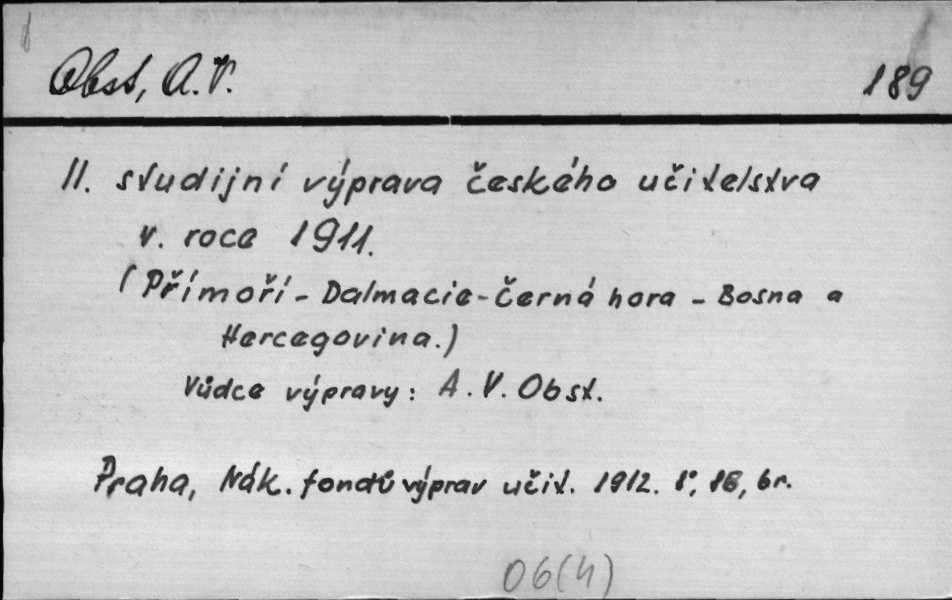 Obst, A.V.
189
II. studijní výprava českého učitelstva
v. roce 1911.
(Přímoří - Dalmacie - Černá hora - Bosna a
Hercegovina.)
Vůdce výpravy: A. V. Obst.
Praha, Nák. fondů výprav učit. 1912. 8°, 16, br.
06(4)